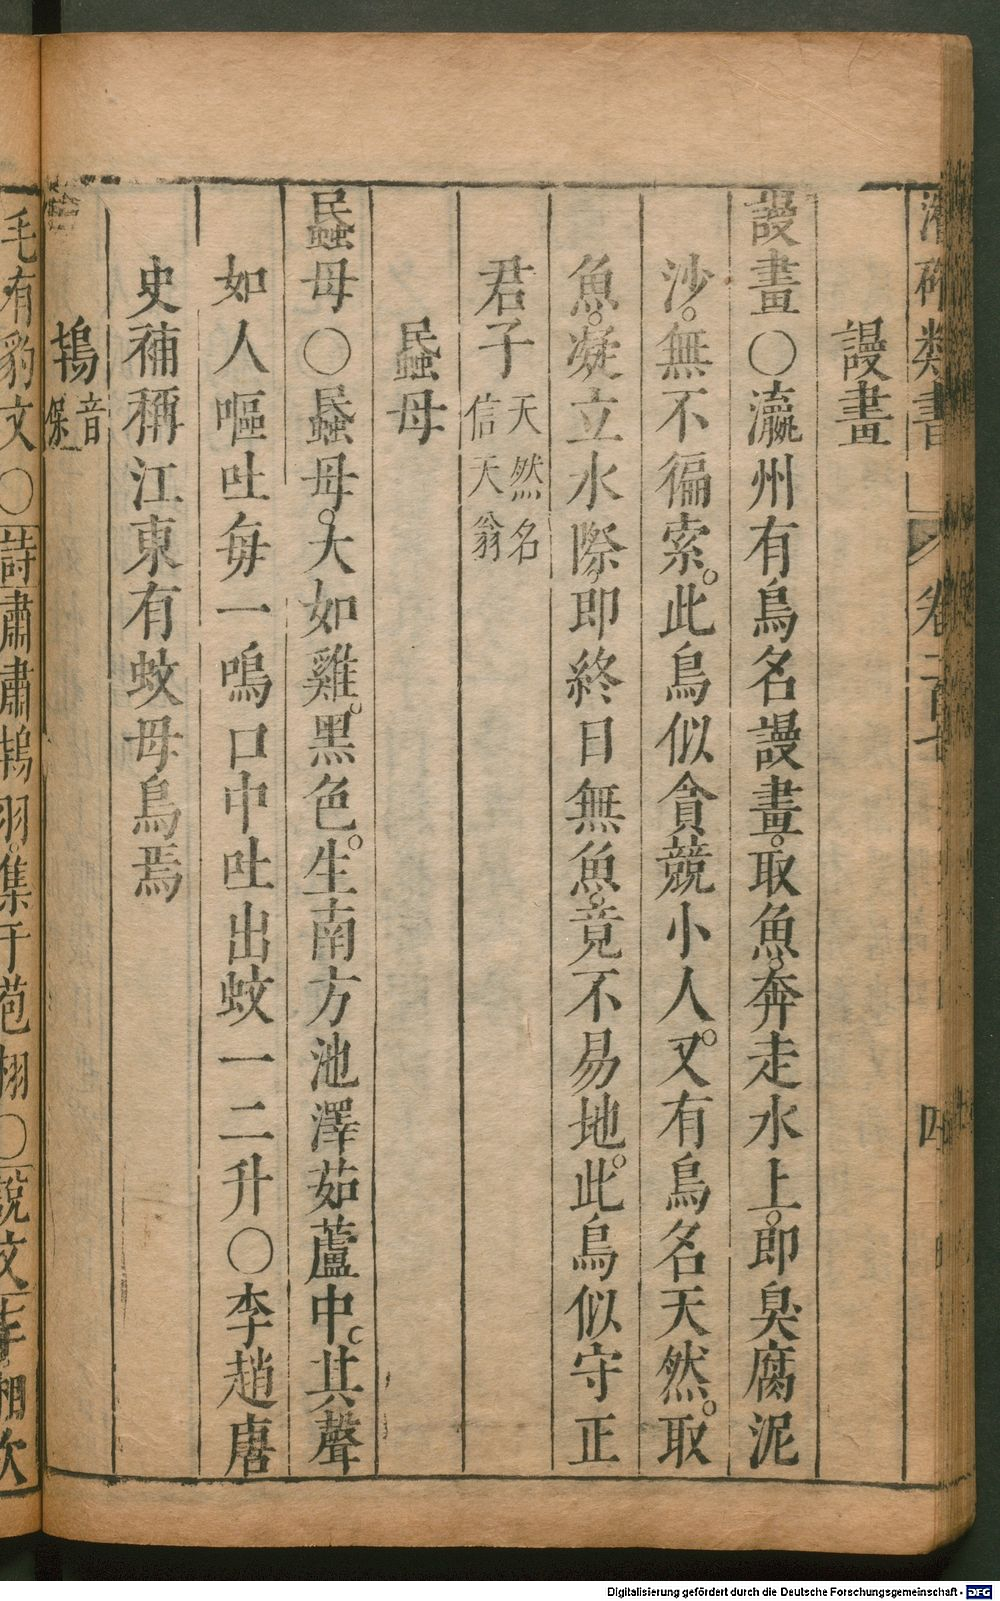 潛確類書 卷一百七 四
謾畫
謾畫○瀛州有鳥名謾畫。取魚。奔走水上。即臭腐泥
沙。無不徧索。此鳥似貪競小人。又有鳥名天然。取
魚。凝立水際。即終日無魚。竟不易地。此鳥似守正
君子 天然名信天翁
䘇母
䘇母○䘇母。大如雞。黑色。生南方池澤茹蘆中。其聲
如人嘔吐每一鳴口中吐出蚊一二升○李趙唐
史補稱江東有蚊母鳥焉
鴇 音保
毛有豹文○詩肅肅鴇羽。集于苞栩○說文 相次
Digitalisierung gefördert durch die Deutsche Forschungsgemeinschaft - DFG